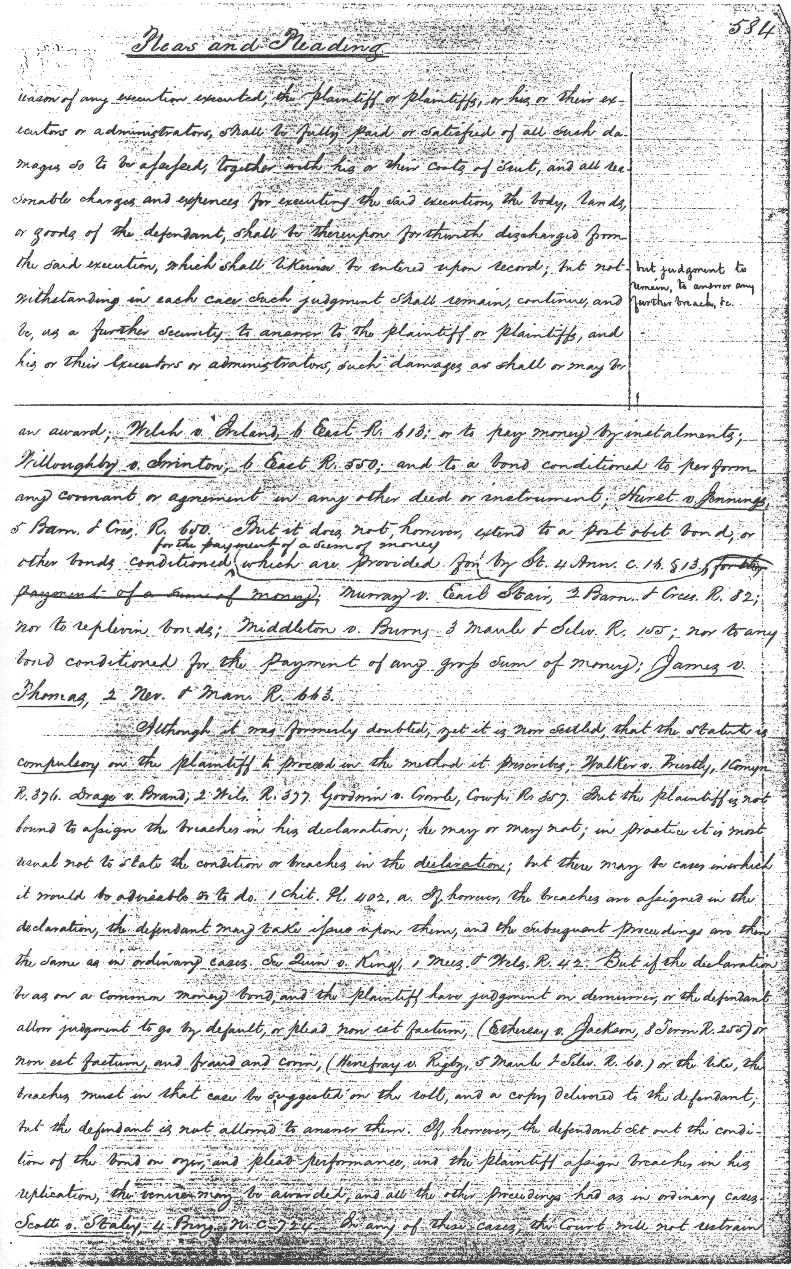 584
Pleas and Pleading
reason of any execution executed, the plaintiff or plaintiffs, or his or their ex-
ecutors or administrators, shall be fully paid or satisfied of all such da-
mages so to be assessed, together with his or their costs of suit, and all rea-
sonable charges and expences for executing the said execution, the body, lands,
or goods of the defendant, shall be thereupon forthwith discharged from
the said execution, which shall likewise be entered upon record; but not-
withstanding in each case such judgment shall remain, continue, and
be, as a further security to answer to the plaintiff or plaintiffs, and
his or their executors or administrators, such damages as shall or may be
but judgment to
remain, to answer any
further breach, &c.
an award; Welch v. Ireland, 6 East R. 613; or to pay money by instalments;
Willoughby v. Swinton, 6 East R. 550; and to a bond conditioned to perform
any covenant or agreement in any other deed or instrument; Hurst v. Jennings,
5 Barn. & Cres. R. 650. But it does not, however, extend to a post obit bond, or
for the payment of a sum of money
other bonds conditioned (which are provided for by St. 4 Ann. c. 16. § 13,) for the
payment of a sum of money; Murray v. Earl Stair, 2 Barn. & Cres. R. 82;
nor to replevin bonds; Middleton v. Burn, 3 Maule & Selw. R. 155; nor to any
bond conditioned for the payment of any gross sum of money; James v.
Thomas, 2 Nev. & Man. R. 663.
Although it was formerly doubted, yet it is now settled, that the statute is
compulsory on the plaintiff to proceed in the method it prescribes, Walker v. Priestly, 1 Comyn
R. 376. Drage v. Brand, 2 Wils. R. 377. Goodwin v. Crowle, Cowp. R. 357. But the plaintiff is not
bound to assign the breaches in his declaration; he may or may not; in practice it is most
usual not to state the condition or breaches in the declaration; but there may be cases in which
it would be advisable so to do. 1 Chit. Pl. 402, a. If, however, the breaches are assigned in the
declaration, the defendant may take issue upon them, and the subsequent proceedings are then
the same as in ordinary cases. See Quin v. King, 1 Mees. & Wels. R. 42. But if the declaration
be as on a common money bond, and the plaintiff have judgment on demurrer, or the defendant
allow judgment to go by default, or plead non est factum, (Ethersay v. Jackson, 8 Term R. 255) or
non est factum, and fraud and covin, (Homfray v. Rigby, 5 Maule & Selw. R. 60.) or the like, the
breaches must in that case be suggested on the roll, and a copy delivered to the defendant;
but the defendant is not allowed to answer them. If, however, the defendant set out the condi-
tion of the bond on oyer, and plead performance, and the plaintiff assign breaches in his
replication, the venire may be awarded, and all the other proceedings had as in ordinary cases.
Scott v. Staley, 4 Bing. N. C. 724. In any of these cases, the Court will not restrain